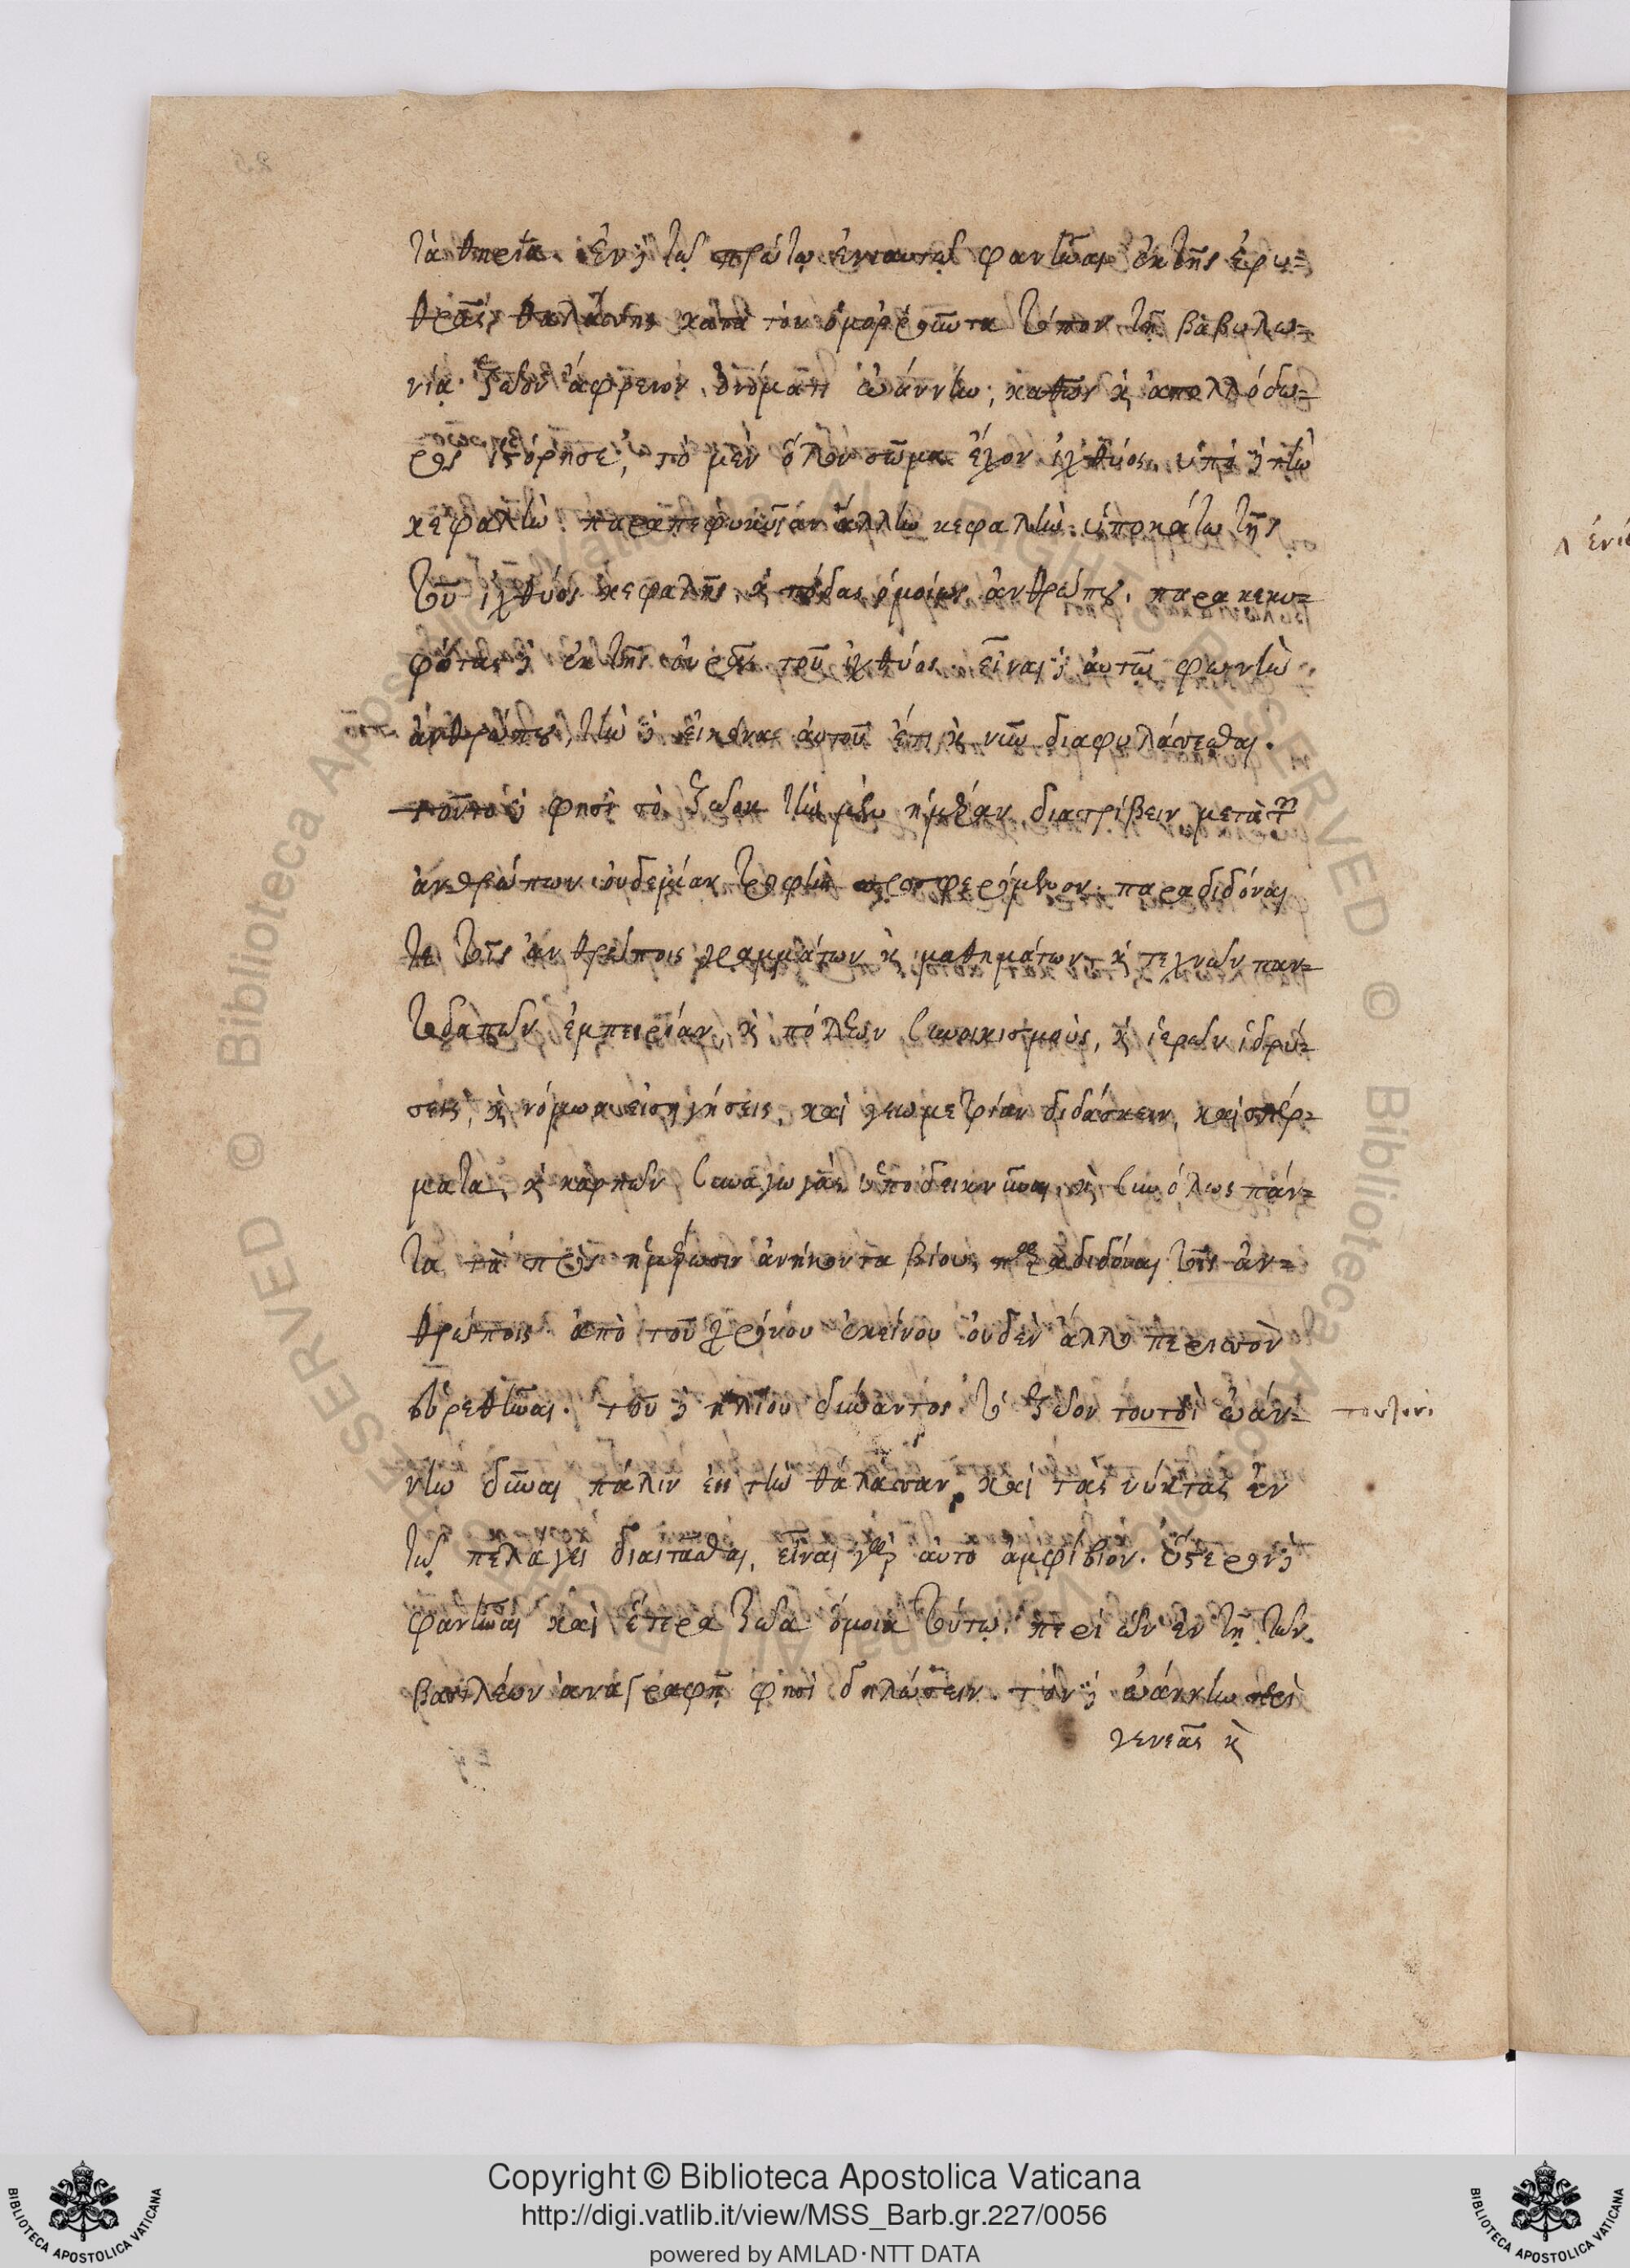 τὰ θηρία. ἐν δὲ τῷ πρώτῳ ἐνιαυτῷ φανῆναι ἐκ τῆς ἐρυ=
θρᾶς θαλάσσης κατὰ τὸν ὁμοροῦντα τόπον τῇ βαβυλω=
νίᾳ ζῶον ἄφρενον ὀνόματι ὠάννην, καθὼς καὶ ἀπολλόδω=
ρος ἱστόρησε, τὸ μὲν ὅλον σῶμα ἔχον ἰχθύος, ὑπὸ δὲ τὴν
κεφαλὴν παραπεφυκυῖαν ἄλλην κεφαλὴν ὑποκάτω τῆς
τοῦ ἰχθύος κεφαλῆς, καὶ πόδας ὁμοίως ἀνθρώπου, παραπεκυ=
φότας δὲ ἐκ τῆς οὐρᾶς τοῦ ἰχθύος. εἶναι δὲ αὐτῷ φωνὴν
ἀνθρώπου, τὴν δὲ εἰκόνα αὐτοῦ ἔτι καὶ νῦν διαφυλάσσεσθαι.
τοῦτο δέ φησι τὸ ζῶον τὴν μὲν ἡμέραν διατρίβειν μετὰ τῶν
ἀνθρώπων οὐδεμίαν τροφὴν προσφερόμενον. παραδιδόναι
τε τοῖς ἀνθρώποις γραμμάτων καὶ μαθημάτων καὶ τεχνῶν παν=
τοδαπῶν ἐμπειρίαν, καὶ πόλεων συνοικισμοὺς, καὶ ἱερῶν ἱδρύ=
σεις, καὶ νόμων εἰσηγήσεις, καὶ γεωμετρίαν διδάσκειν, καὶ σπέρ=
ματα, καὶ καρπῶν συναγωγὰς ὑποδεικνύναι, καὶ συνόλως πάν=
τα τὰ πρὸς ἡμέρωσιν ἀνήκοντα βίου παραδιδόναι τοῖς ἀν=
θρώποις. ἀπὸ τοῦ χρόνου ἐκείνου οὐδὲν ἄλλο περισσὸν
εὑρεθῆναι. τοῦ δὲ ἡλίου δύναντος τὸ ζῶον τουτοὶ ὠάν=
τουτονὶ
νην δῦναι πάλιν εἰς τὴν θάλασσαν, καὶ τὰς νύκτας ἐν
τῷ πελάγει διαιτᾶσθαι, εἶναι γὰρ αὐτὸ ἀμφίβιον. ὕστερον δὲ
φανῆναι καὶ ἕτερα ζῶα ὅμοια τούτῳ. περὶ ὧν ἐν τῇ τῶν
βασιλέων ἀναγραφῇ φησὶ δηλώσειν. τὸν δὲ ὠάννην περὶ
γενεᾶς καὶ
Copyright © Biblioteca Apostolica Vaticana
http://digi.vatlib.it/view/MSS_Barb.gr.227/0056
powered by AMLAD·NTT DATA